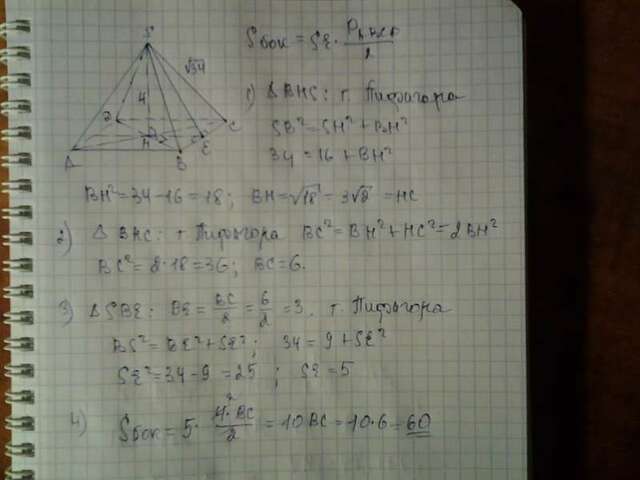 S
√34
4
D
C
A
H
B
E
Sбок = SE · P_ABCD / 2
1) △BHS: т. Пифагора
SB² = SH² + BH²
34 = 16 + BH²
BH² = 34 - 16 = 18; BH = √18 = 3√2 = HC
2) △BHC: т. Пифагора BC² = BH² + HC² = 2BH²
BC² = 2·18 = 36; BC = 6.
3) △SBE: BE = BC/2 = 6/2 = 3. т. Пифагора
BS² = BE² + SE²; 34 = 9 + SE²
SE² = 34 - 9 = 25; SE = 5
4) Sбок = 5 · 4·BC/2 = 10BC = 10·6 = 60